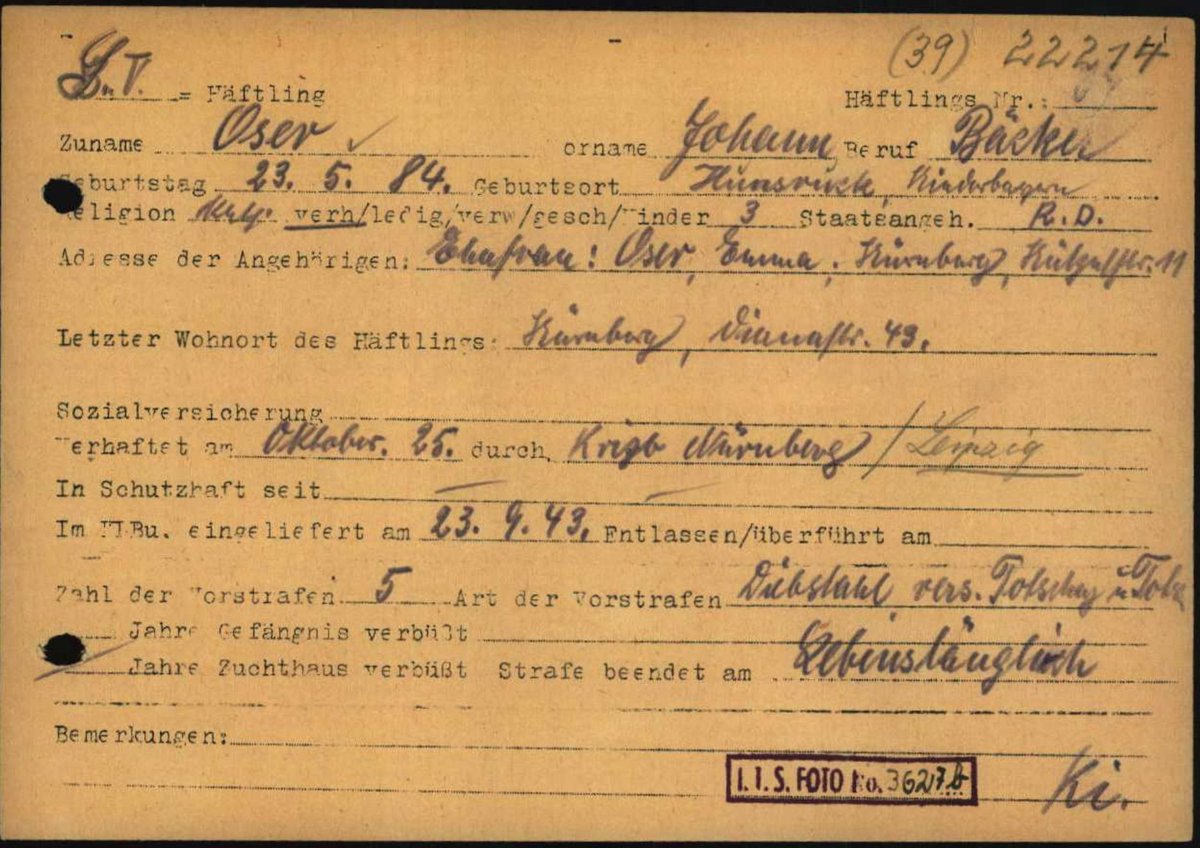 (39) 22214
S.V. = Häftling Häftlings Nr.:
Zuname Oser orname Johann, Beruf Bäcker
Geburtstag 23. 5. 84. Geburtsort Hunsruck, Niederbayern
Religion kath. verh/ledig/verw/gesch/Kinder 3 Staatsangeh. R.D.
Adresse der Angehörigen: Ehefrau: Oser, Emma, Nürnberg, 11
Letzter Wohnort des Häftlings: Nürnberg, Dianastr. 43.
Sozialversicherung
Verhaftet am Oktober. 25. durch Kripo Nürnberg / Leipzig
In Schutzhaft seit
Im KLBu. eingeliefert am 23. 9. 43. Entlassen/überführt am
Zahl der Vorstrafen 5 Art der Vorstrafen Diebstahl, vers. Totschlag u.
Jahre Gefängnis verbüßt
Jahre Zuchthaus verbüßt Strafe beendet am Lebenslänglich
Bemerkungen:
I.T.S. FOTO No. 36217 Ki.